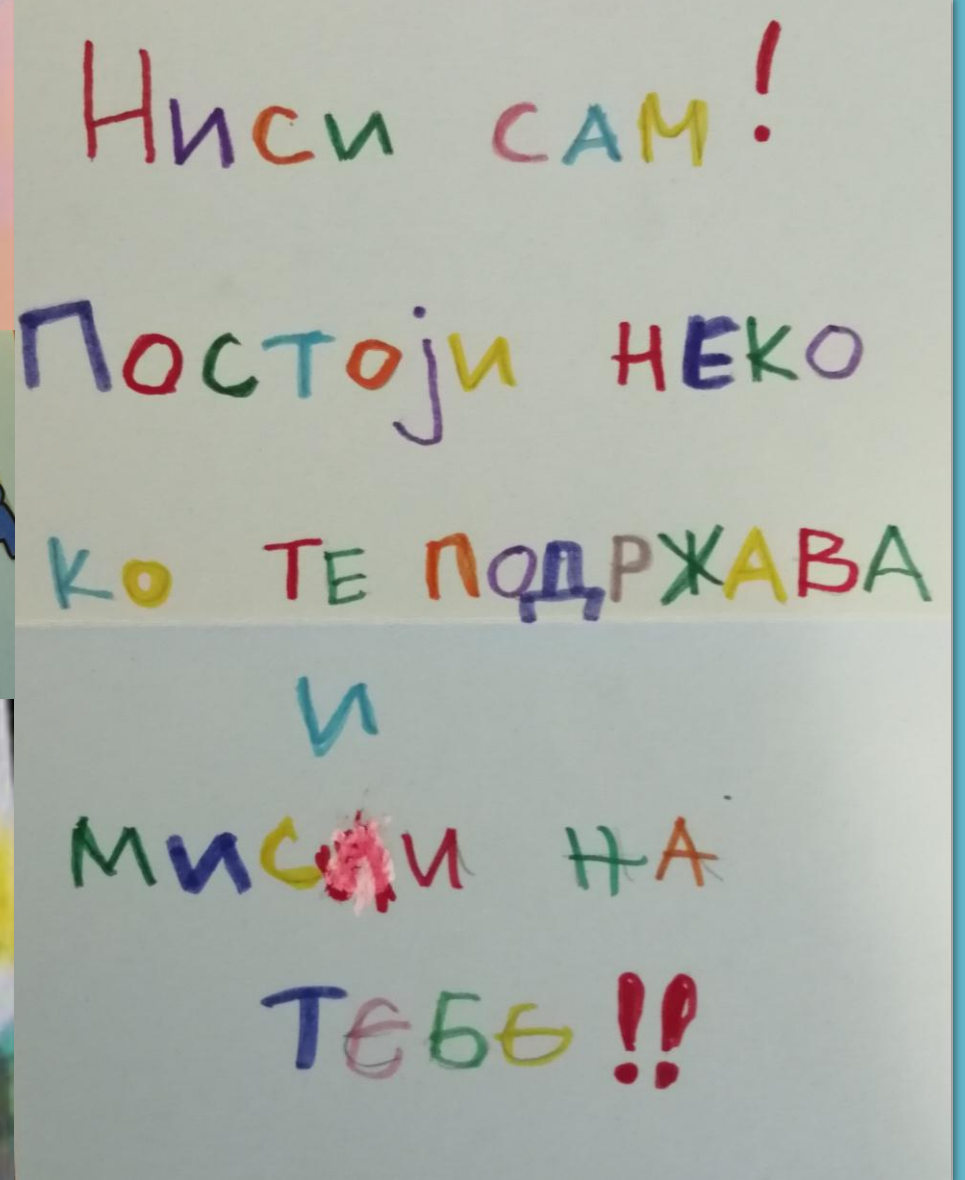 Ниси сам!
Постоји неко
ко те подржава
и
мисли на
тебе!!